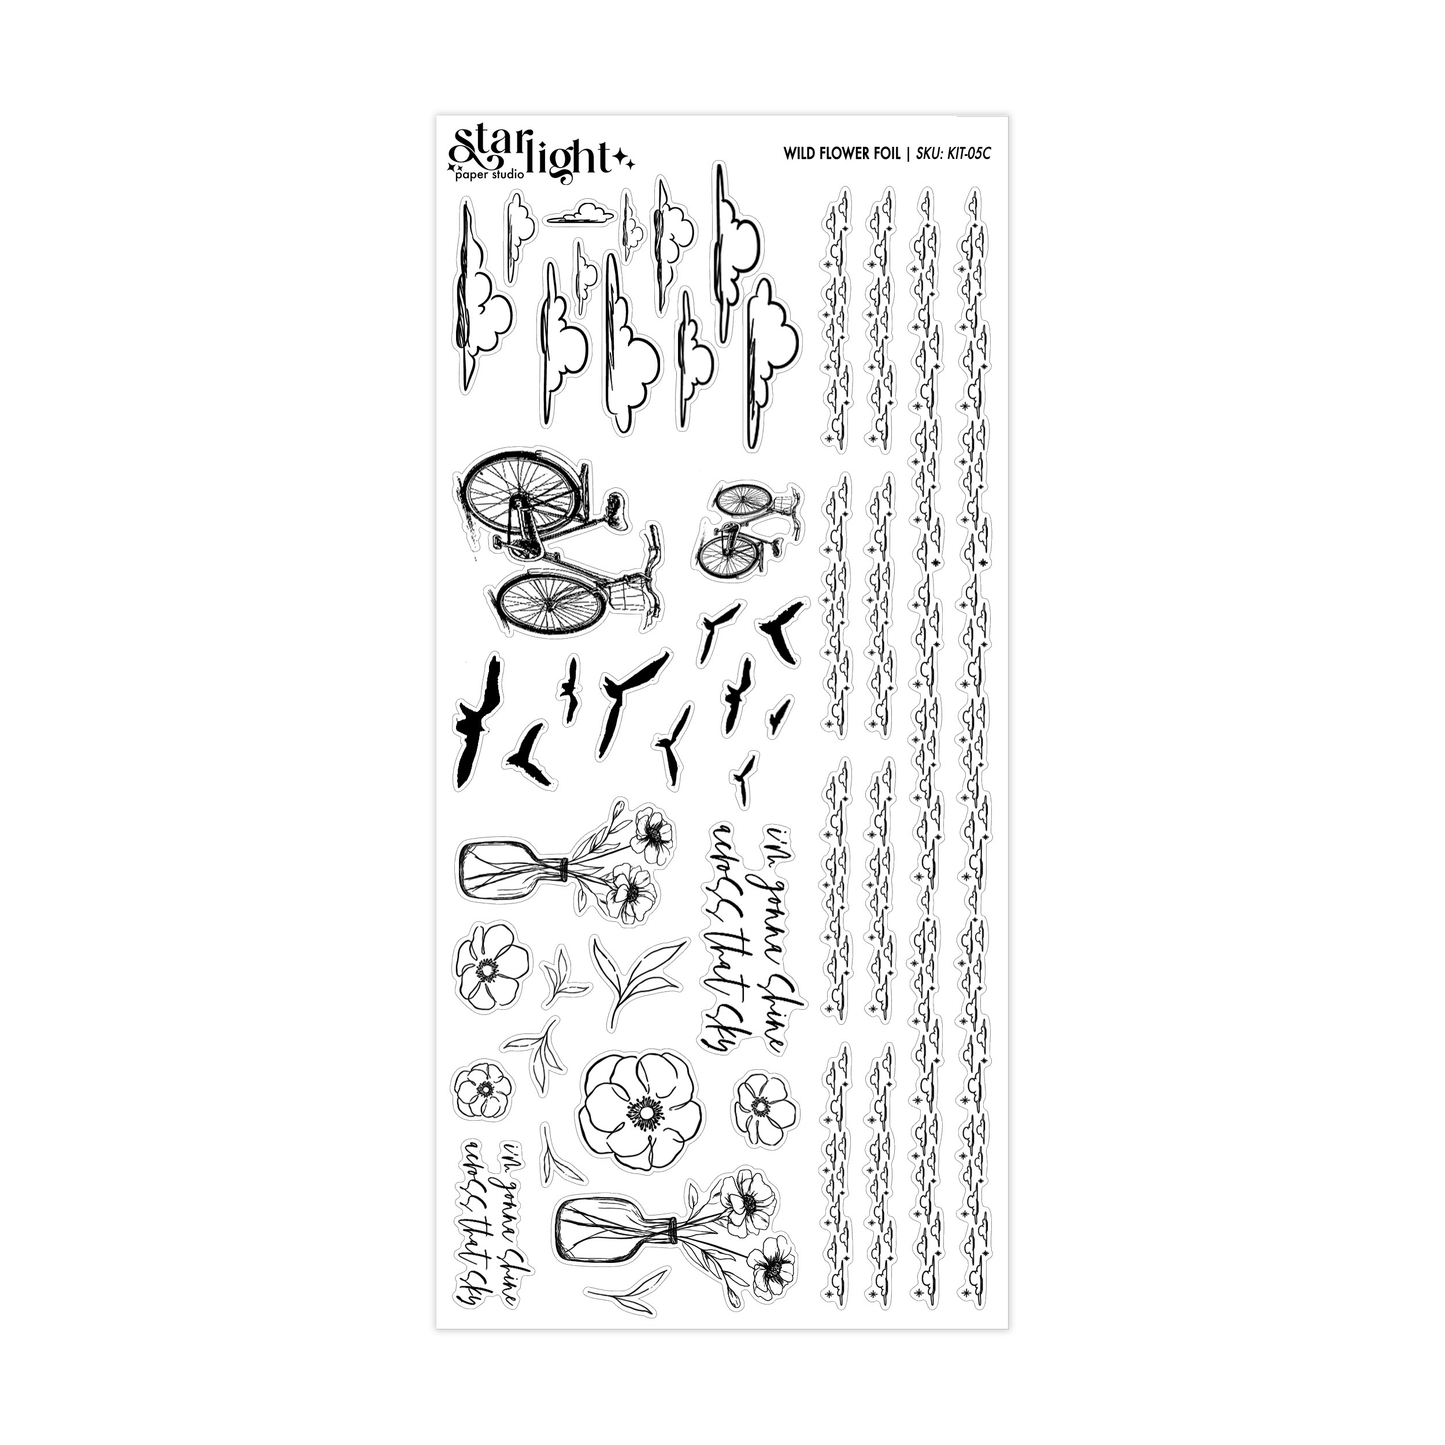 starlight
paper studio
WILD FLOWER FOIL | SKU: KIT-05C
i'm gonna shine
across that sky
i'm gonna shine
across that sky